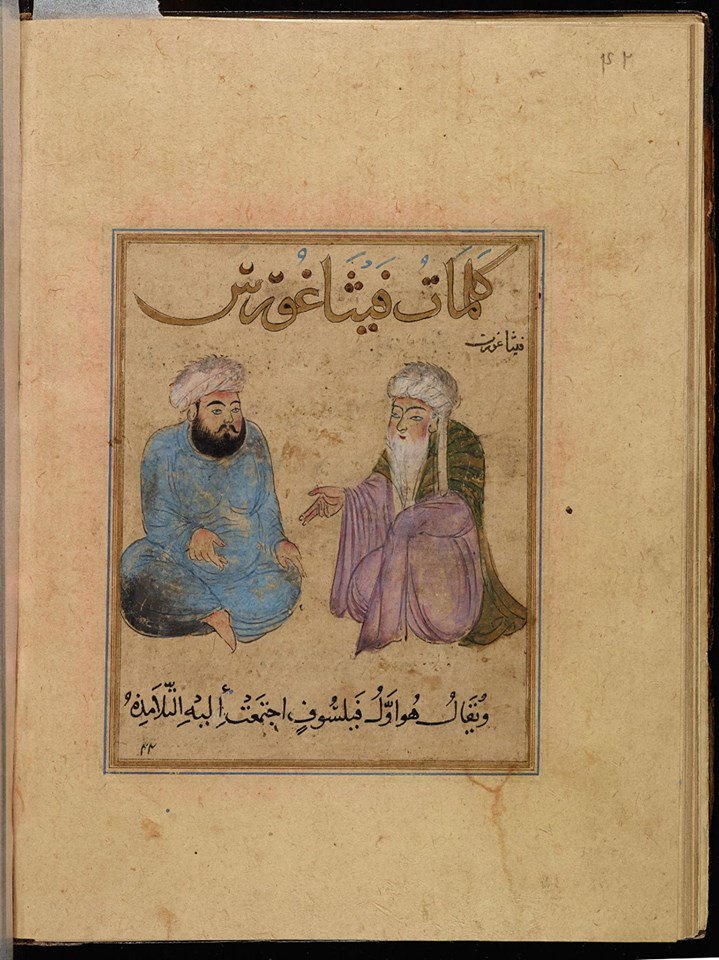 كَلِمَاتُ فَيْثَاغُوْرَسَ
فيثاغورت
وَيُقَالُ هُوَ اَوَّلُ فَيْلَسُوفٍ اجتَمَعَتْ إِليْهِ التَّلَامِذَهُ
۴۲